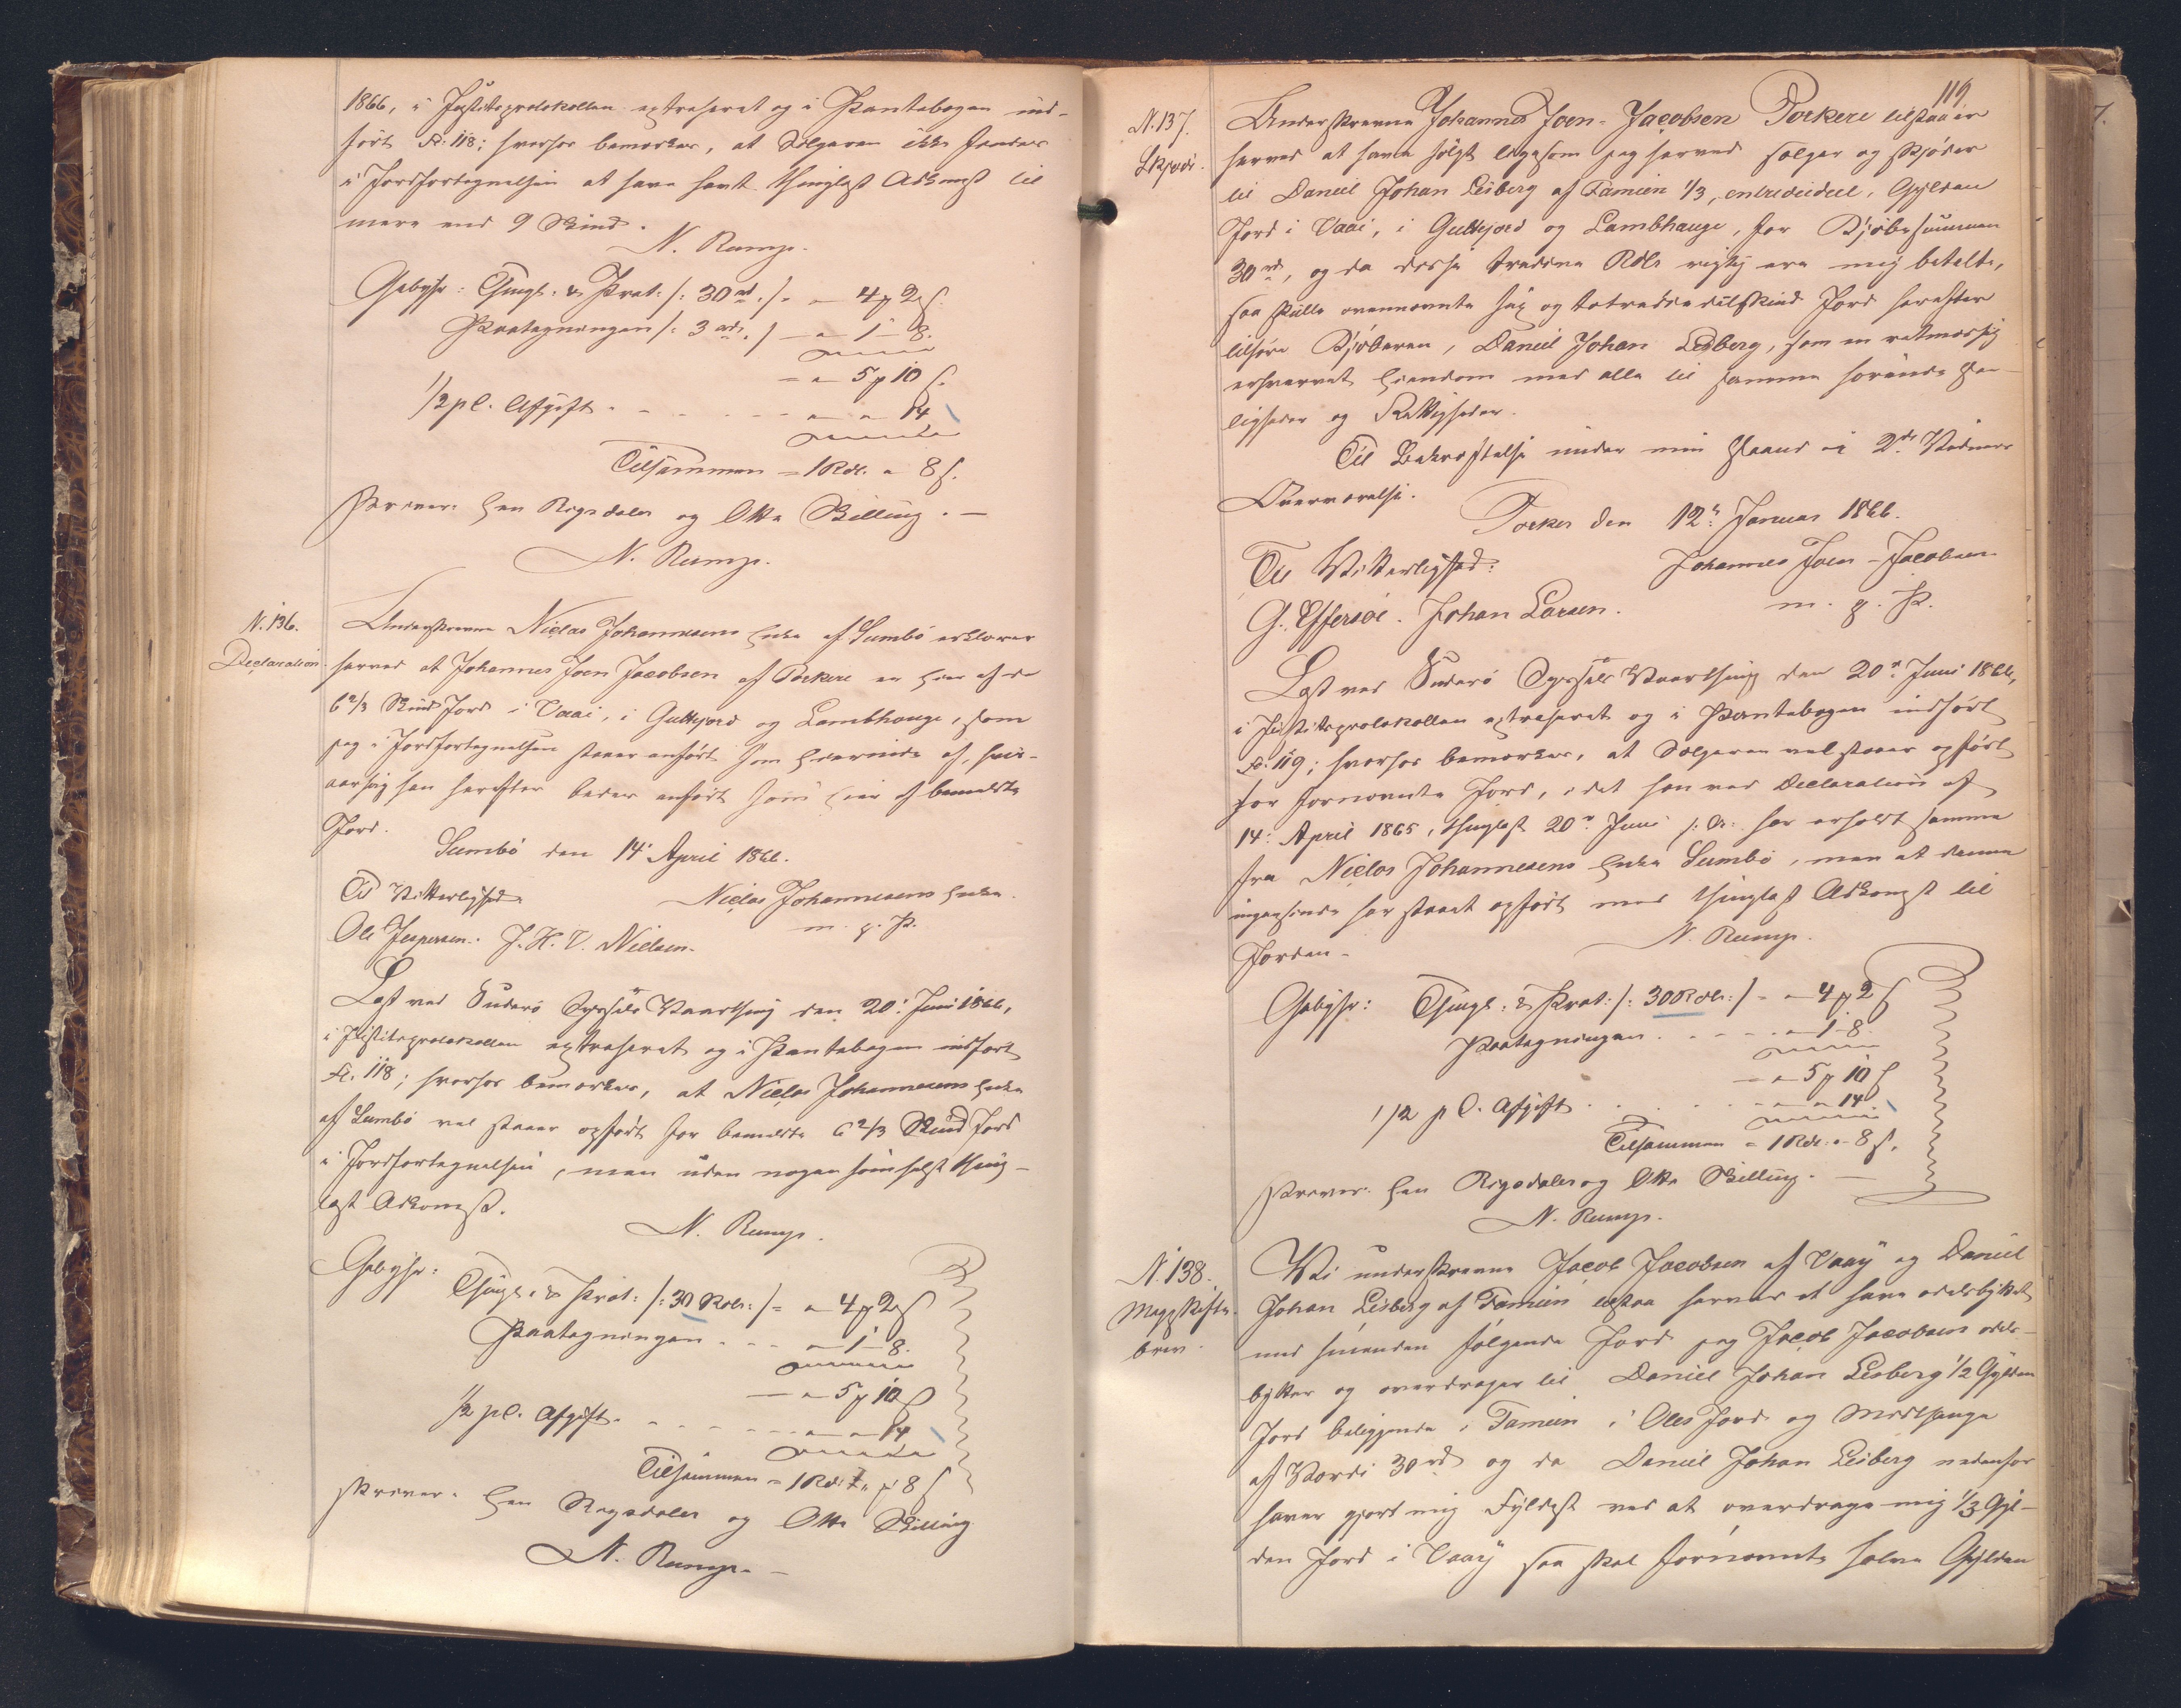 1866, i Justitsprotokollen extraheret og i Pantebogen ind-
ført Fol. 118; hvorhos bemærkes, at Sælgeren ikke findes
i Jordfortegnelsen at have havt thinglæst Adkomst til
mere end 9 Skind.
N. Rump.
Gebyhr: Thingl. & Prot: /: 30 rd :/ - " 4 ƶ 2 ß.
Paategningen /: 3 rd. :/ - " 1 - 8.
= " 5 ƶ 10 ß.
1/2 pC. Afgift - - - - " " 14
Tilsammen = 1 Rdl. " 8 ß.
skriver Een Rigsdaler og Otte Skilling. —
N. Rump.
N. 136.
Declaration.
Underskrevne Niclas Johannesens Enke af Sumbö erklærer
herved at Johannes Joen Jacobsen af Porkere er Eier af de
6 2/3 Skind Jord i Vaai, i Guttejord og Lambhauge, som
jeg i Jordfortegnelsen staaer anført som Eierinde af, hvis-
aarsag han herefter bedes anført som Eier af bemeldte
Jord.
Sumbö den 14' April 1866.
Til Vitterlighed Niclas Johannesens Enke.
Ole Jespersen. J. H. V. Nielsen. m. f. P.
Læst ved Suderö Syssels Vaarthing den 20' Juni 1866,
i Justitsprotokollen extraheret og i Pantebogen indført
Fol. 118; hvorhos bemærkes, at Niclas Johannesens Enke
af Sumbö vel staaer opført for bemeldte 6 2/3 Skind Jord
i Jordfortegnelsen, men uden nogen somhelst thing-
læst Adkomst.
N. Rump.
Gebyhr: Thingl. & Prot: /: 30 Rdlr: :/ = " 4 ƶ 2 ß
Paategningen - - - " 1 - 8.
— " 5 ƶ 10 ß
1/2 pC. Afgift - - - - - " " 14
Tilsammen = 1 Rd. " ƶ 8 ß
skriver Een Rigsdaler og Otte Skilling
N. Rump. —
119
N. 137.
Skjøde.
Underskrevne Johannes Joen-Jacobsen Porkere tilstaaer
herved at have solgt ligesom jeg herved sælger og skjøder
til Daniel Johan Lisberg af Famien 1/3, entrediedeel, Gylden
Jord i Vaai, i Guttejord og Lambhauge, for Kjøbesummen
30 rd, og da disse tredive Rdlr rigtig ere mig betalte,
saa skulle ovennævnte sex og totrediedeelskind Jord herefter
tilhøre Kjøberen, Daniel Johan Lisberg, som en retmæssig
erhvervet Eiendom med alle til samme hørende Her-
ligheder og Rettigheder.
Til Bekræftelse under min Haand i 2de Vidners
Overværelse.
Porker den 12' Januar 1866.
Til Vitterlighed: Johannes Joen-Jacobsen
G. Effersøe. Johan Larsen. m. f. P.
Læst ved Suderö Syssels Vaarthing den 20' Juni 1866,
i Justitsprotokollen extraheret og i Pantebogen indført
Fol. 119; hvorhos bemærkes, at Sælgeren vel staaer opført
for fornævnte Jord, idet han ved Declaration af
14' April 1865, thinglæst 20' Juni s: A: har erholdt samme
fra Niclas Johannesens Enke Sumbö, men at denne
ingensinde har staaet opført med thinglæst Adkomst til
Jorden -
N. Rump.
Gebyhr: Thingl: & Prot: /: 30 Rdlr: :/ - " 4 ƶ 2 ß
Paategningen . - - - " 1 - 8
— " 5 ƶ 10 ß
1/2 pC. Afgift . . . - " " 14
Tilsammen = 1 Rdl: " 8 ß.
skriver Een Rigsdaler og Otte Skilling. —
N. Rump.
N. 138.
Mageskifte-
brev.
Vi underskrevne Jacob Jacobsen af Vaay og Daniel
Johan Lisberg af Famien tilstaa herved at have odelsbyttet
med hinanden følgende Jord jeg Jacob Jacobsen odels-
bytter og overdrager til Daniel Johan Lisberg 1/2 Gylden
Jord beliggende i Famien i Oles Jord og Midthauge
af Værdi 30 rd og da Daniel Johan Lisberg nedenfor
haver gjort mig Fyldest ved at overdrage mig 1/3 Gyl-
den Jord i Vaay saa skal fornævnte halve Gylden